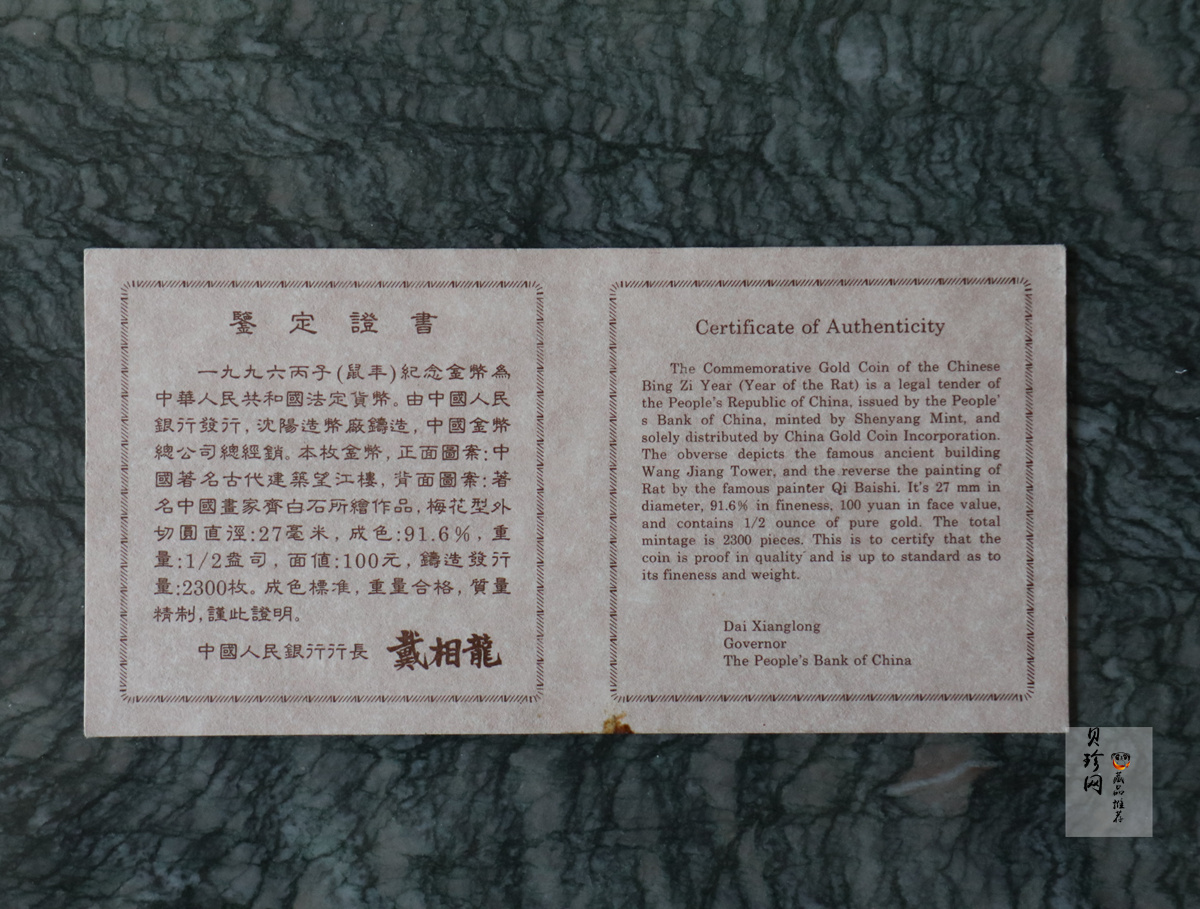 鑒定證書
一九九六丙子(鼠年)紀念金幣為
中華人民共和國法定貨幣。由中國人民
銀行發行,沈陽造幣廠鑄造,中國金幣
總公司總經銷。本枚金幣,正面圖案:中
國著名古代建築望江樓,背面圖案:著
名中國畫家齊白石所繪作品,梅花型外
切圓直徑:27毫米,成色:91.6%,重
量:1/2盎司,面值:100元,鑄造發行
量:2300枚。成色標准,重量合格,質量
精制,謹此證明。
中國人民銀行行長 戴相龍
Certificate of Authenticity
The Commemorative Gold Coin of the Chinese
Bing Zi Year (Year of the Rat) is a legal tender of
the People's Republic of China, issued by the People'
s Bank of China, minted by Shenyang Mint, and
solely distributed by China Gold Coin Incorporation.
The obverse depicts the famous ancient building
Wang Jiang Tower, and the reverse the painting of
Rat by the famous painter Qi Baishi. It's 27 mm in
diameter, 91.6% in fineness, 100 yuan in face value,
and contains 1/2 ounce of pure gold. The total
mintage is 2300 pieces. This is to certify that the
coin is proof in quality and is up to standard as to
its fineness and weight.
Dai Xianglong
Governor
The People's Bank of China
贝珍网
藏品推荐